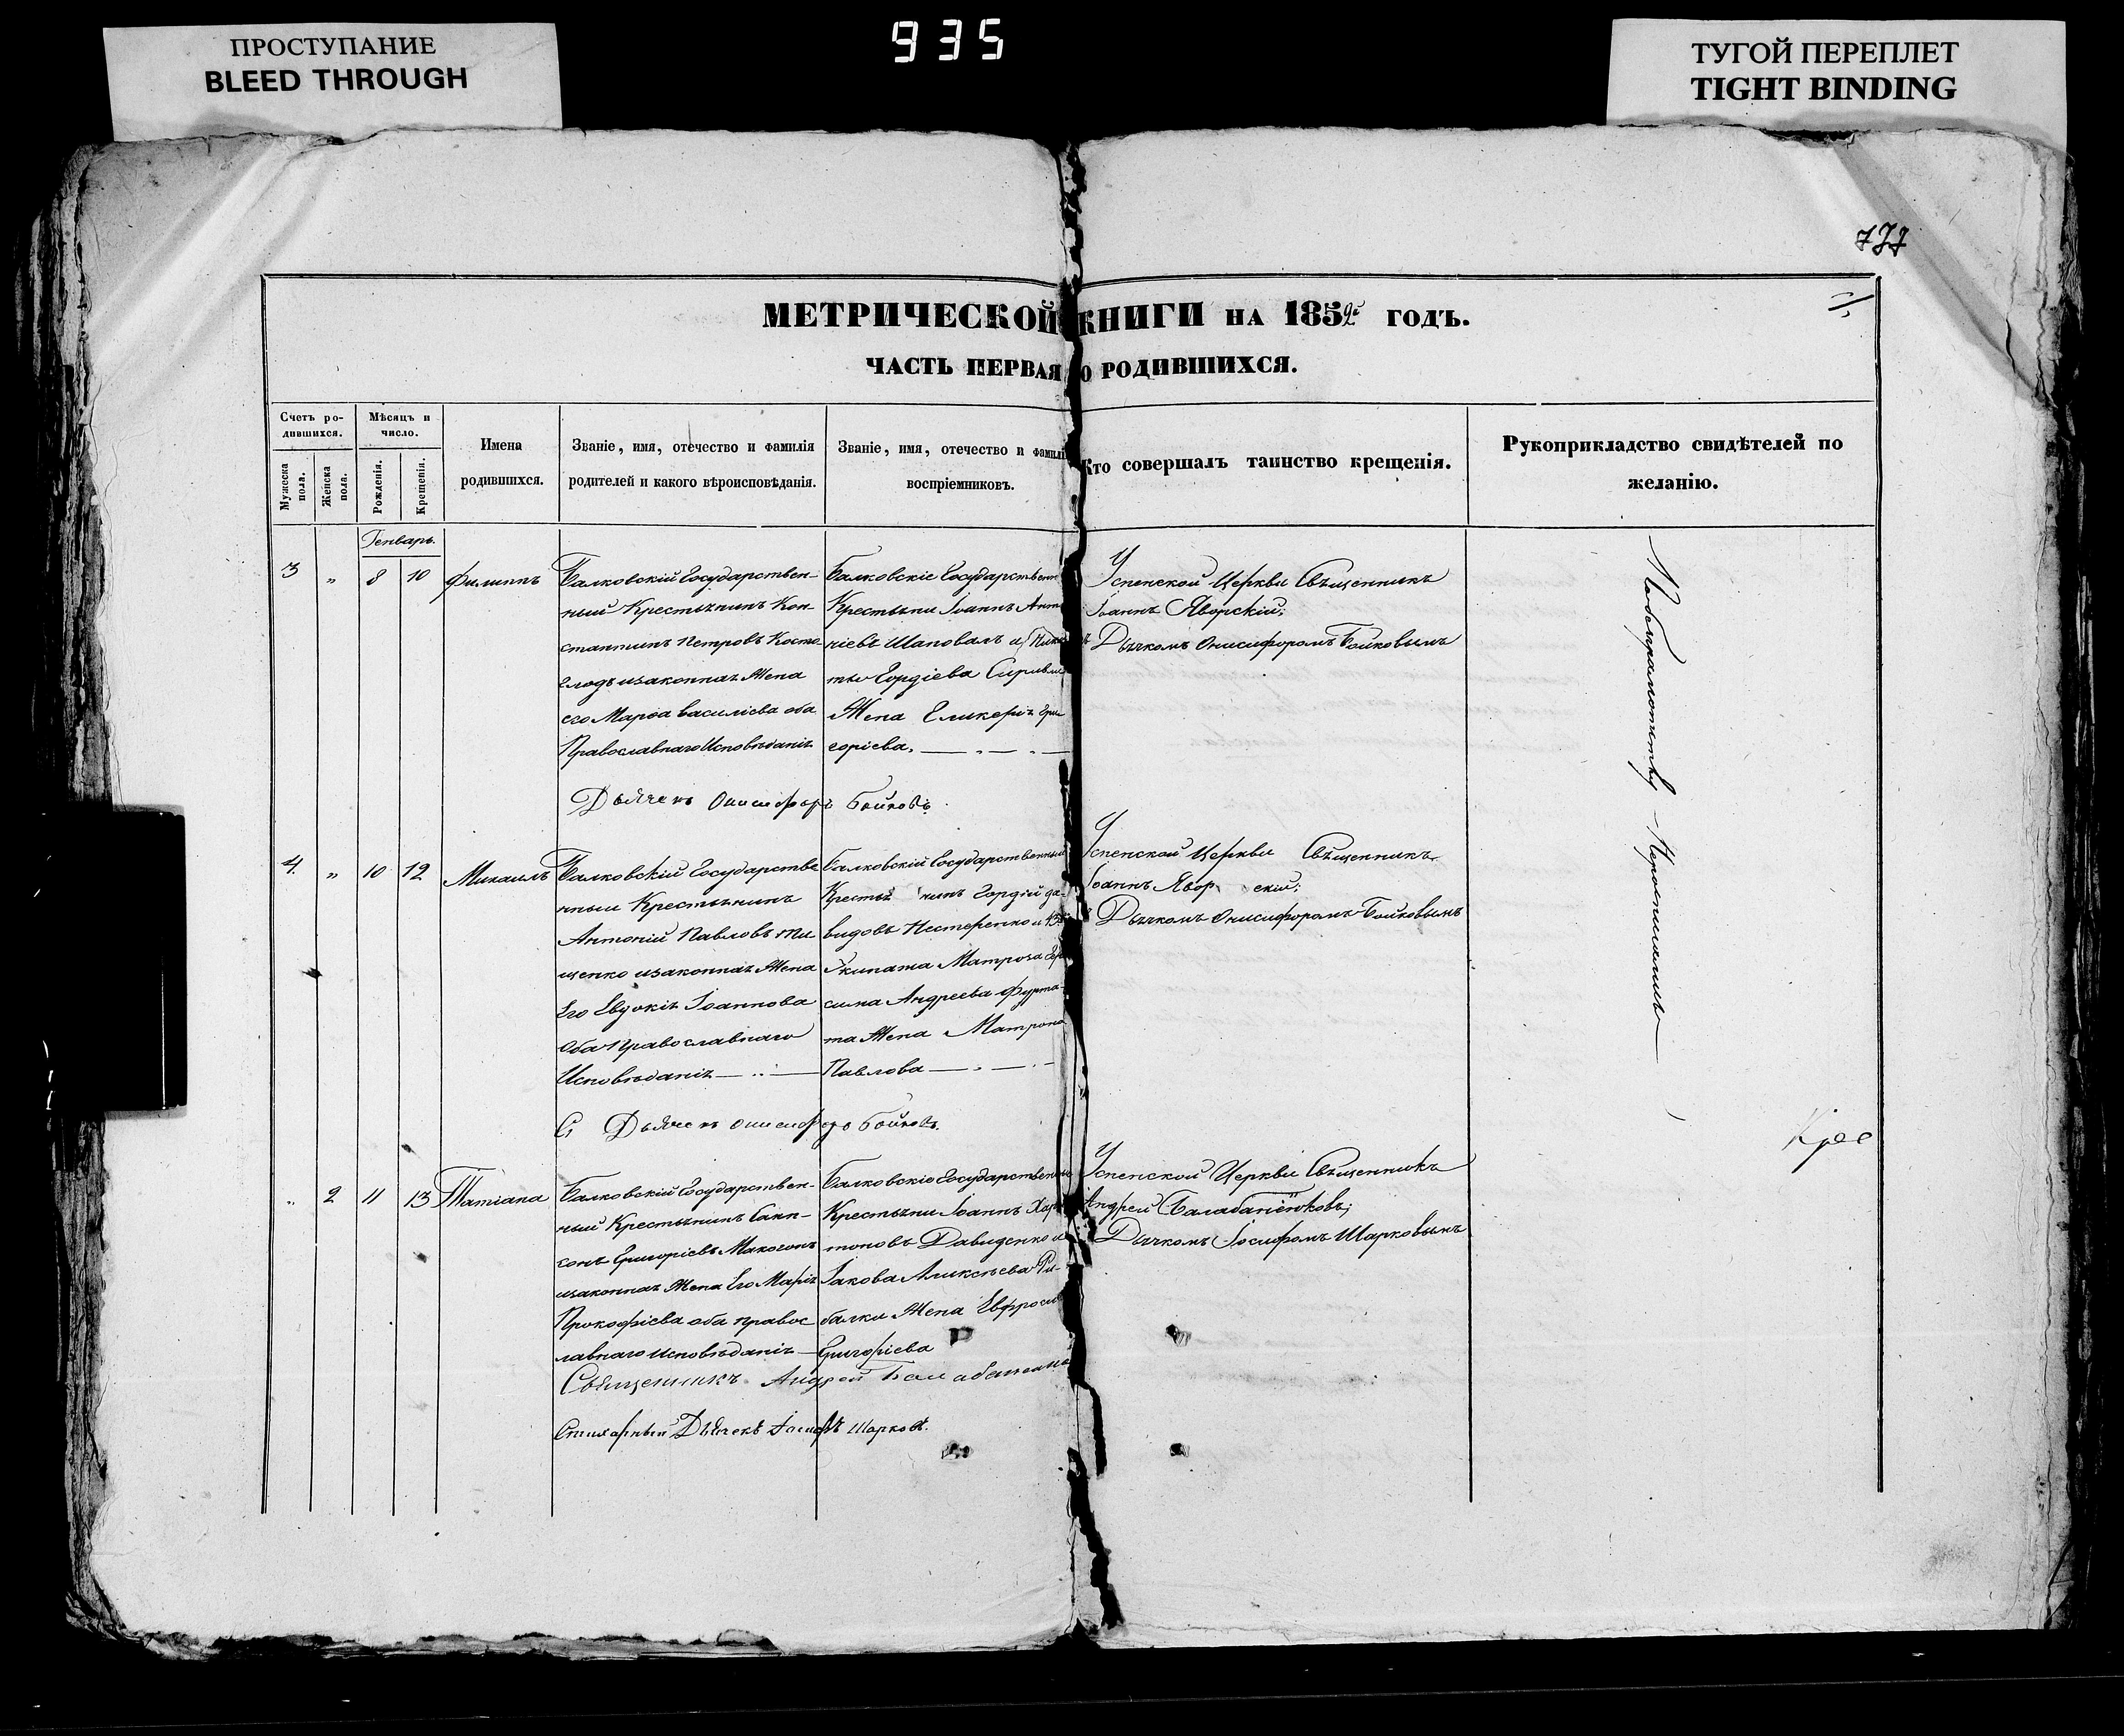 ПРОСТУПАНИЕ
BLEED THROUGH
935
ТУГОЙ ПЕРЕПЛЕТ
TIGHT BINDING
777
МЕТРИЧЕСКОЙ КНИГИ НА 1859й ГОДЪ.
ЧАСТЬ ПЕРВАЯ О РОДИВШИХСЯ.
Счетъ ро-
дившихся.
Мужеска
пола.
Женска
пола.
Мѣсяцъ и
число.
Рожденія.
Крещенія.
Имена
родившихся.
Званіе, имя, отечество и фамилія
родителей и какого вѣроисповѣданія.
Званіе, имя, отечество и фамилія
воспріемниковъ.
Кто совершалъ таинство крещенія.
Рукоприкладство свидѣтелей по
желанію.
Генварь.
3 " 8 10 Филиппъ
Балковскій Государствен-
ный Крестьянинъ Кон-
стантинъ Петровъ Косто-
гладъ изаконная Жена
его Марѳа Василіева оба
Православнаго Исповѣданія
Балковскіе Государственн
Крестьяни Іоаннъ Анто
ніевъ Шаповалъ и Ники
ты Гордіева
Жена Гликерія Гри
горіева.
Успенской Церкви Священникъ
Іоаннъ Яворскій;
съ Дьячкомъ Онисифоромъ Бойковымъ
Дьячекъ Онисифоръ Бойковъ.
4. " 10 12 Михаилъ
Балковскій Государстве
нный Крестьянинъ
Антоній Павловъ Ти
щенко изаконная Жена
Его Евдокія Іоаннова
Оба Православнаго
Исповѣданія
Балковскій Государственный
Крестьянинъ Гордій Да-
видовъ Нестеренко и
Экипажа Матроза Гера
сима Андреева Фурма-
та Жена Матрона
Павлова
Успенской Церкви Священникъ
Іоаннъ Яворскій;
Дьячкомъ Онисифоромъ Бойковымъ
Дьячекъ Онисифоръ Бойковъ.
" 2 11 13 Татіана
Балковскій Государствен-
ный Крестьянинъ Самп-
сонъ Григоріевъ Макогонъ
изаконная Жена Его Марія
Прокофіева оба правос
лавнаго исповѣданія
Балковскіе Государственны
Крестьяни Іоаннъ Хари
тоновъ Давиденко и
Іакова Аликсѣева Ри-
балки Жена Евфроси
Григоріева
Успенской Церкви Священникъ
Андрей Балабаненковъ;
Дьячкомъ Іосифомъ Шарковымъ
Священникъ Андрей
Стихарный Дьячекъ Іосифъ Шарковъ.